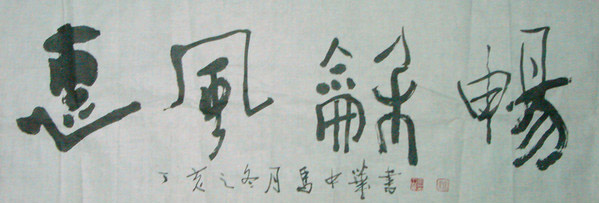 惠風龢暢
丁亥之冬月馬中華書